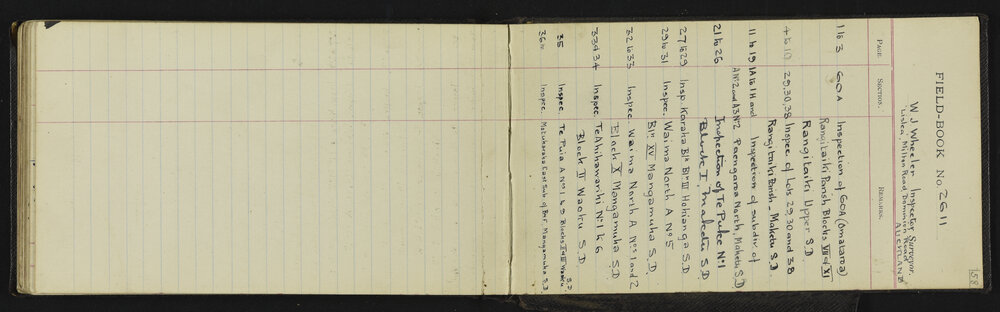 58
FIELD-BOOK No. 2611
W J Wheeler Inspector Surveyor,
Milton Road, Dominion Road
AUCKLAND
PAGE. SECTION. REMARKS.
1 to 3 60A Inspection of 60A (Omakaroa)
Rangitaiki Parish Blocks VII & XI
Rangitaiki Upper S.D
4 to 10 29,30,38 Inspec of Lots 29,30 and 38
Rangitaiki Parish - Maketu S.D.
11 to 19 1A to 1H and Inspection of subdiv. of
A No 2 and A3 No 2 Paengaroa North, Maketu S.D
21 to 26 Inspection of Te Puke No 1
Block I. Maketu S.D
27 to 29 Insp. Karaka Blk Blk III Hokianga S.D
29 to 31 Inspec. Waima North A No 5
Blk XV Mangamuka S.D.
32 to 33 Inspec. Waima North A Nos 1 and 2
Block X Mangamuka S.D
33 & 34 Inspec Te Ahikawariki No 1 & 6
Block II Waoku S.D.
35 Inspec. Te Puia A No 1 & 9 Blocks I & II Waoku S.D
36 Inspec. East Sub. of Mangamuka S.D.